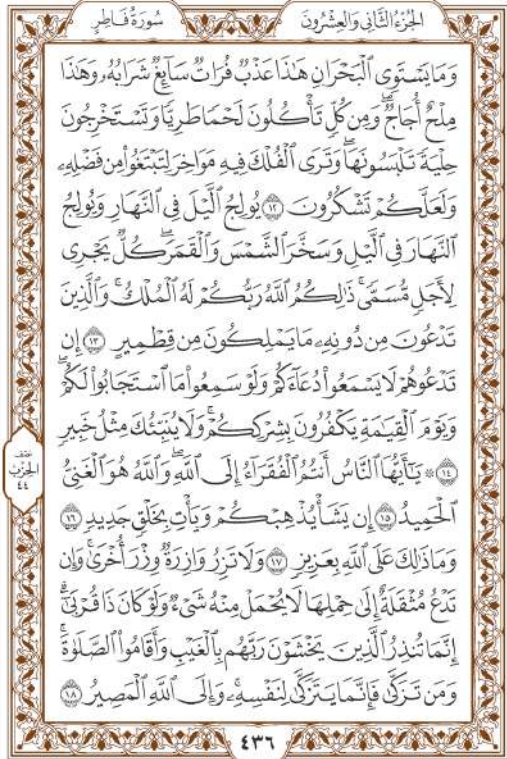 سُورَةُ فَاطِرٍ
الجُزْءُ الثَّانِي وَالعِشْرُونَ
وَمَا يَسْتَوِي ٱلْبَحْرَانِ هَٰذَا عَذْبٌ فُرَاتٌ سَآئِغٌ شَرَابُهُۥ وَهَٰذَا
مِلْحٌ أُجَاجٌ ۖ وَمِن كُلٍّ تَأْكُلُونَ لَحْمًا طَرِيًّا وَتَسْتَخْرِجُونَ
حِلْيَةً تَلْبَسُونَهَا ۖ وَتَرَى ٱلْفُلْكَ فِيهِ مَوَاخِرَ لِتَبْتَغُوا۟ مِن فَضْلِهِۦ
وَلَعَلَّكُمْ تَشْكُرُونَ ١٢ يُولِجُ ٱلَّيْلَ فِى ٱلنَّهَارِ وَيُولِجُ
ٱلنَّهَارَ فِى ٱلَّيْلِ وَسَخَّرَ ٱلشَّمْسَ وَٱلْقَمَرَ ۖ كُلٌّ يَجْرِى
لِأَجَلٍ مُّسَمًّى ۚ ذَٰلِكُمُ ٱللَّهُ رَبُّكُمْ لَهُ ٱلْمُلْكُ ۚ وَٱلَّذِينَ
تَدْعُونَ مِن دُونِهِۦ مَا يَمْلِكُونَ مِن قِطْمِيرٍ ١٣ إِن
تَدْعُوهُمْ لَا يَسْمَعُوا۟ دُعَآءَكُمْ وَلَوْ سَمِعُوا۟ مَا ٱسْتَجَابُوا۟ لَكُمْ ۖ
وَيَوْمَ ٱلْقِيَٰمَةِ يَكْفُرُونَ بِشِرْكِكُمْ ۚ وَلَا يُنَبِّئُكَ مِثْلُ خَبِيرٍ
١٤ ۞ يَٰٓأَيُّهَا ٱلنَّاسُ أَنتُمُ ٱلْفُقَرَآءُ إِلَى ٱللَّهِ ۖ وَٱللَّهُ هُوَ ٱلْغَنِىُّ
ٱلْحَمِيدُ ١٥ إِن يَشَأْ يُذْهِبْكُمْ وَيَأْتِ بِخَلْقٍ جَدِيدٍ ١٦
وَمَا ذَٰلِكَ عَلَى ٱللَّهِ بِعَزِيزٍ ١٧ وَلَا تَزِرُ وَازِرَةٌ وِزْرَ أُخْرَىٰ ۚ وَإِن
تَدْعُ مُثْقَلَةٌ إِلَىٰ حِمْلِهَا لَا يُحْمَلْ مِنْهُ شَىْءٌ وَلَوْ كَانَ ذَا قُرْبَىٰٓ ۗ
إِنَّمَا تُنذِرُ ٱلَّذِينَ يَخْشَوْنَ رَبَّهُم بِٱلْغَيْبِ وَأَقَامُوا۟ ٱلصَّلَوٰةَ ۚ
وَمَن تَزَكَّىٰ فَإِنَّمَا يَتَزَكَّىٰ لِنَفْسِهِۦ ۚ وَإِلَى ٱللَّهِ ٱلْمَصِيرُ ١٨
نصف
الحزب
٤٤
٤٣٦